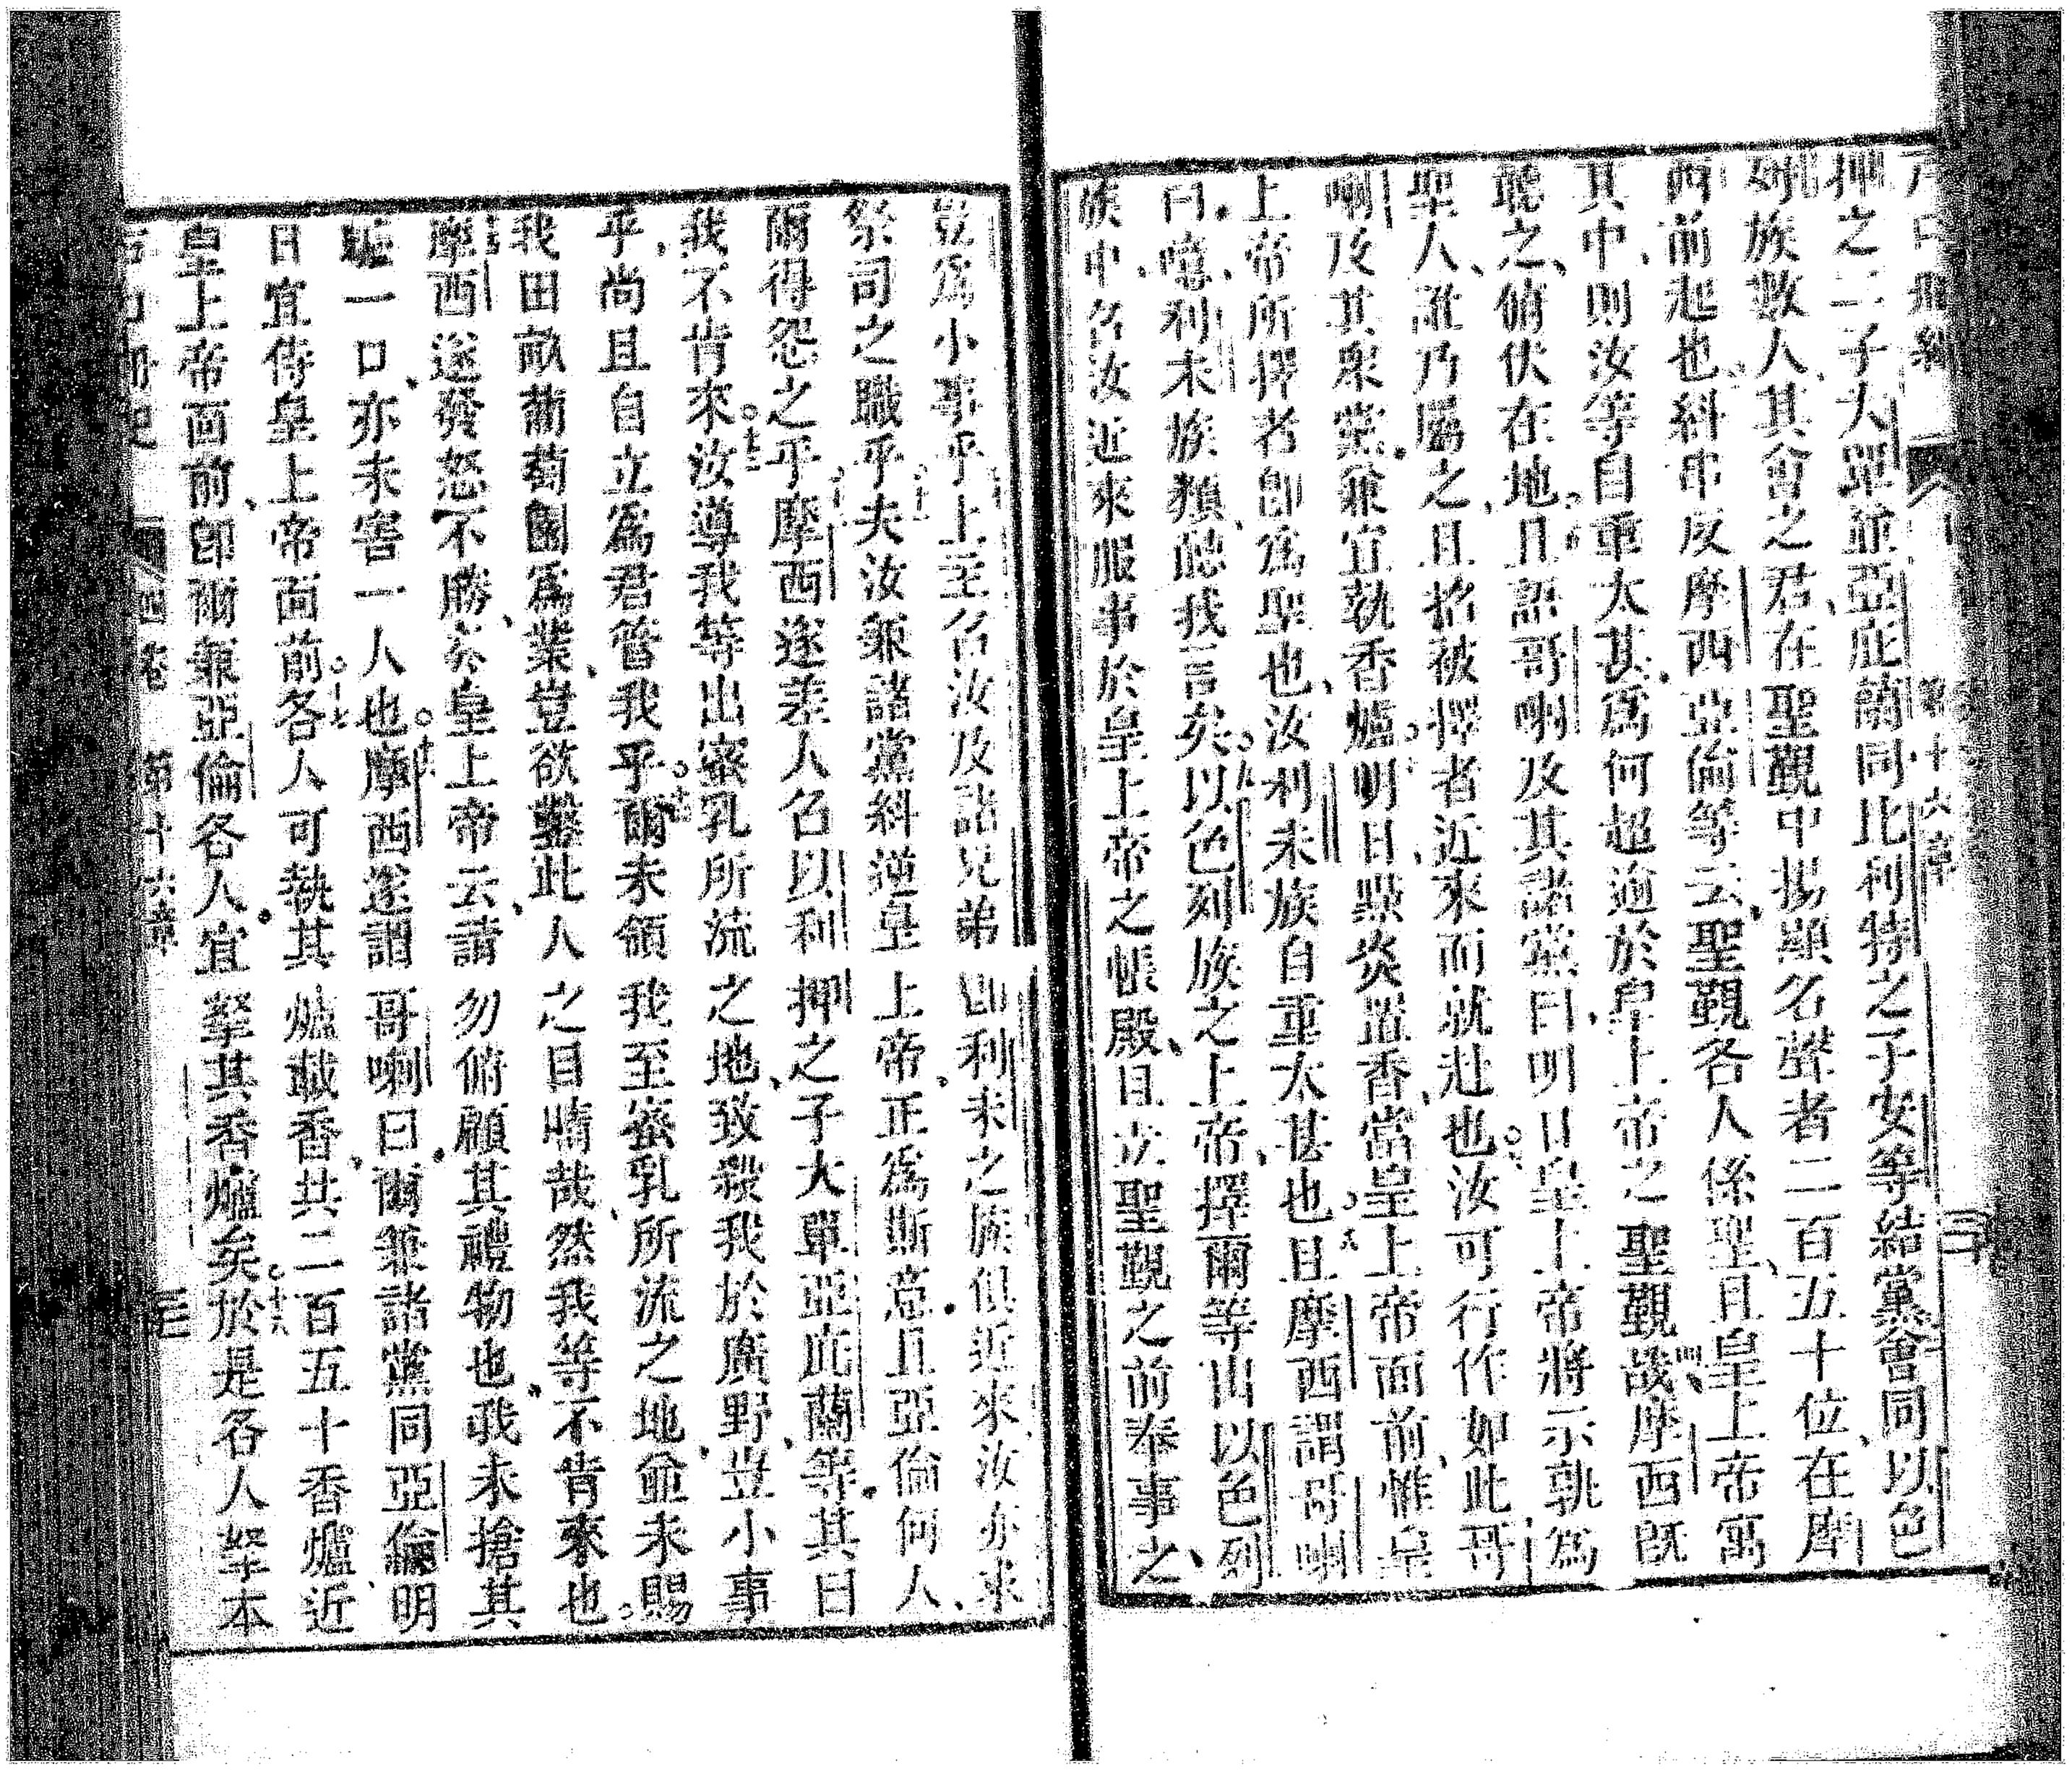 戶口冊紀 第十六章
押之二子大單並亞庇蘭同比利特之子安等結黨會同以色
列族數人其會之君在聖覲中揚顯名聲者二百五十位在摩
西前起也糾串反摩西亞倫等云聖覲各人係聖且皇上帝寓
其中則汝等自重太甚為何超逈於皇上帝之聖覲哉摩西既
聽之俯伏在地且語哥喇及其諸黨曰明日皇上帝將示孰為
聖人誰乃屬之且招被擇者近來而就赴也汝可行作如此哥
喇及其眾黨兼宜執香爐明日點炎置香當皇上帝面前惟皇
上帝所擇者即為聖也汝利未族自重太甚也且摩西謂哥喇
曰噫利未族類聽我言矣以色列族之上帝擇爾等出以色列
族中召汝近來服事於皇上帝之帳殿且立聖覲之前奉事之
豈為小事乎上主召汝及諸兄弟即利未之族俱近來汝亦求
祭司之職乎夫汝兼諸黨糾逆皇上帝正為斯意且亞倫何人
爾得怨之乎摩西遂差人召以利押之子大單亞庇蘭等其曰
我不肯來汝導我等出蜜乳所流之地致殺我於廣野豈小事
乎尚且自立為君管我乎爾未領我至蜜乳所流之地並未賜
我田畝葡萄園為業豈欲鑿此人之目睛哉然我等不肯來也
摩西遂發怒不勝奏皇上帝云請勿俯顧其禮物也我未搶其
驢一口亦未害一人也摩西遂謂哥喇曰爾兼諸黨同亞倫明
日宜侍皇上帝面前各人可執其爐載香共二百五十香爐近
皇上帝面前即爾兼亞倫各人宜拏其香爐矣於是各人拏本
卷 第十六章